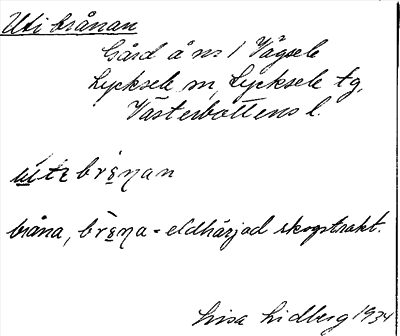 Uti brånan
Gård å nr 1 Vägsele
Lycksele sn, Lycksele tg,
Västerbottens l.
ụti brẹ̀ŋan
bråna, brẹ̀ŋa = eldhärjad skogstrakt.
Lisa Lidberg 1934